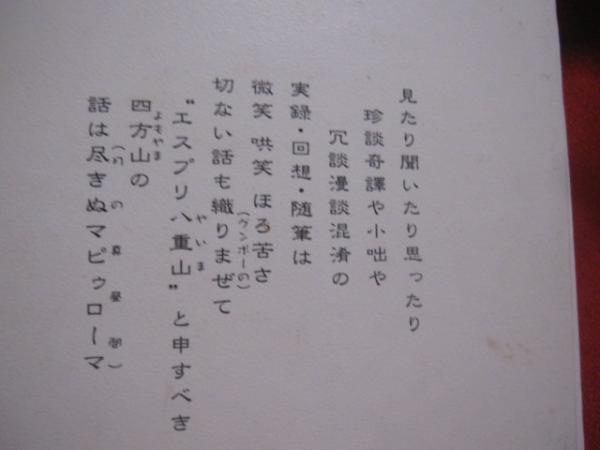 見たり聞いたり思ったり
珍談奇譯や小咄や
冗談漫談混淆の
実録・回想・随筆は
微笑 哄笑 ほろ苦さ
(クンボーの)
切ない話も織りまぜて
やいま
"エスプリ八重山"と申すべき
よもやま
四方山の
話は尽きぬマピゥローマ
の真昼間)